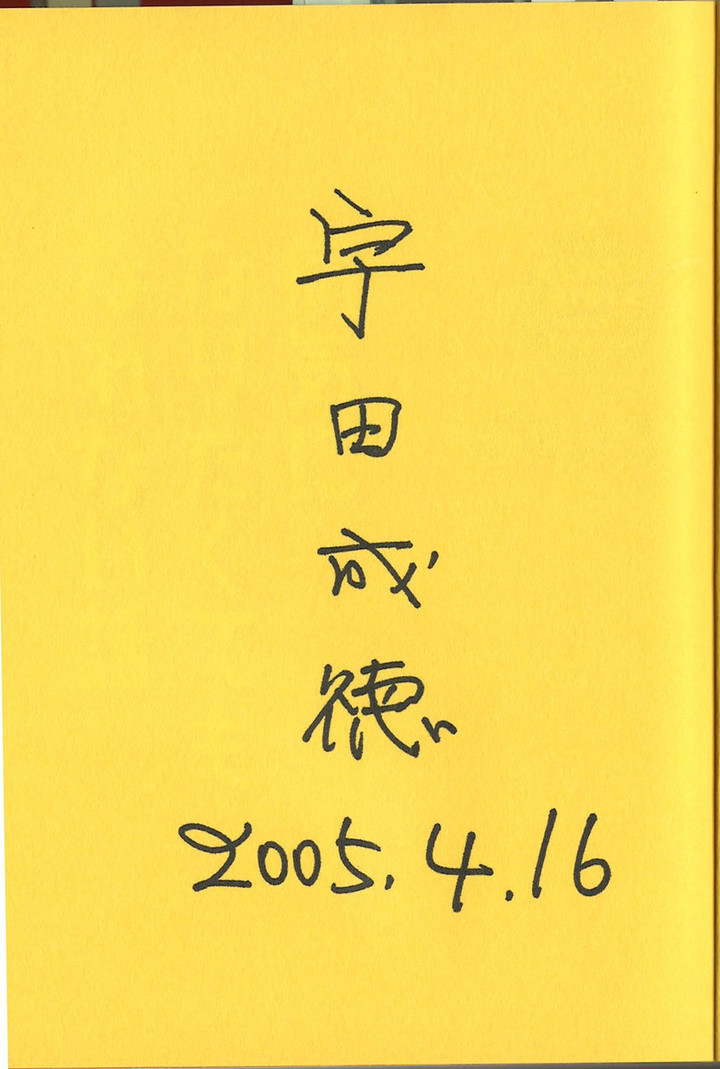 宇田成徳
2005.4.16